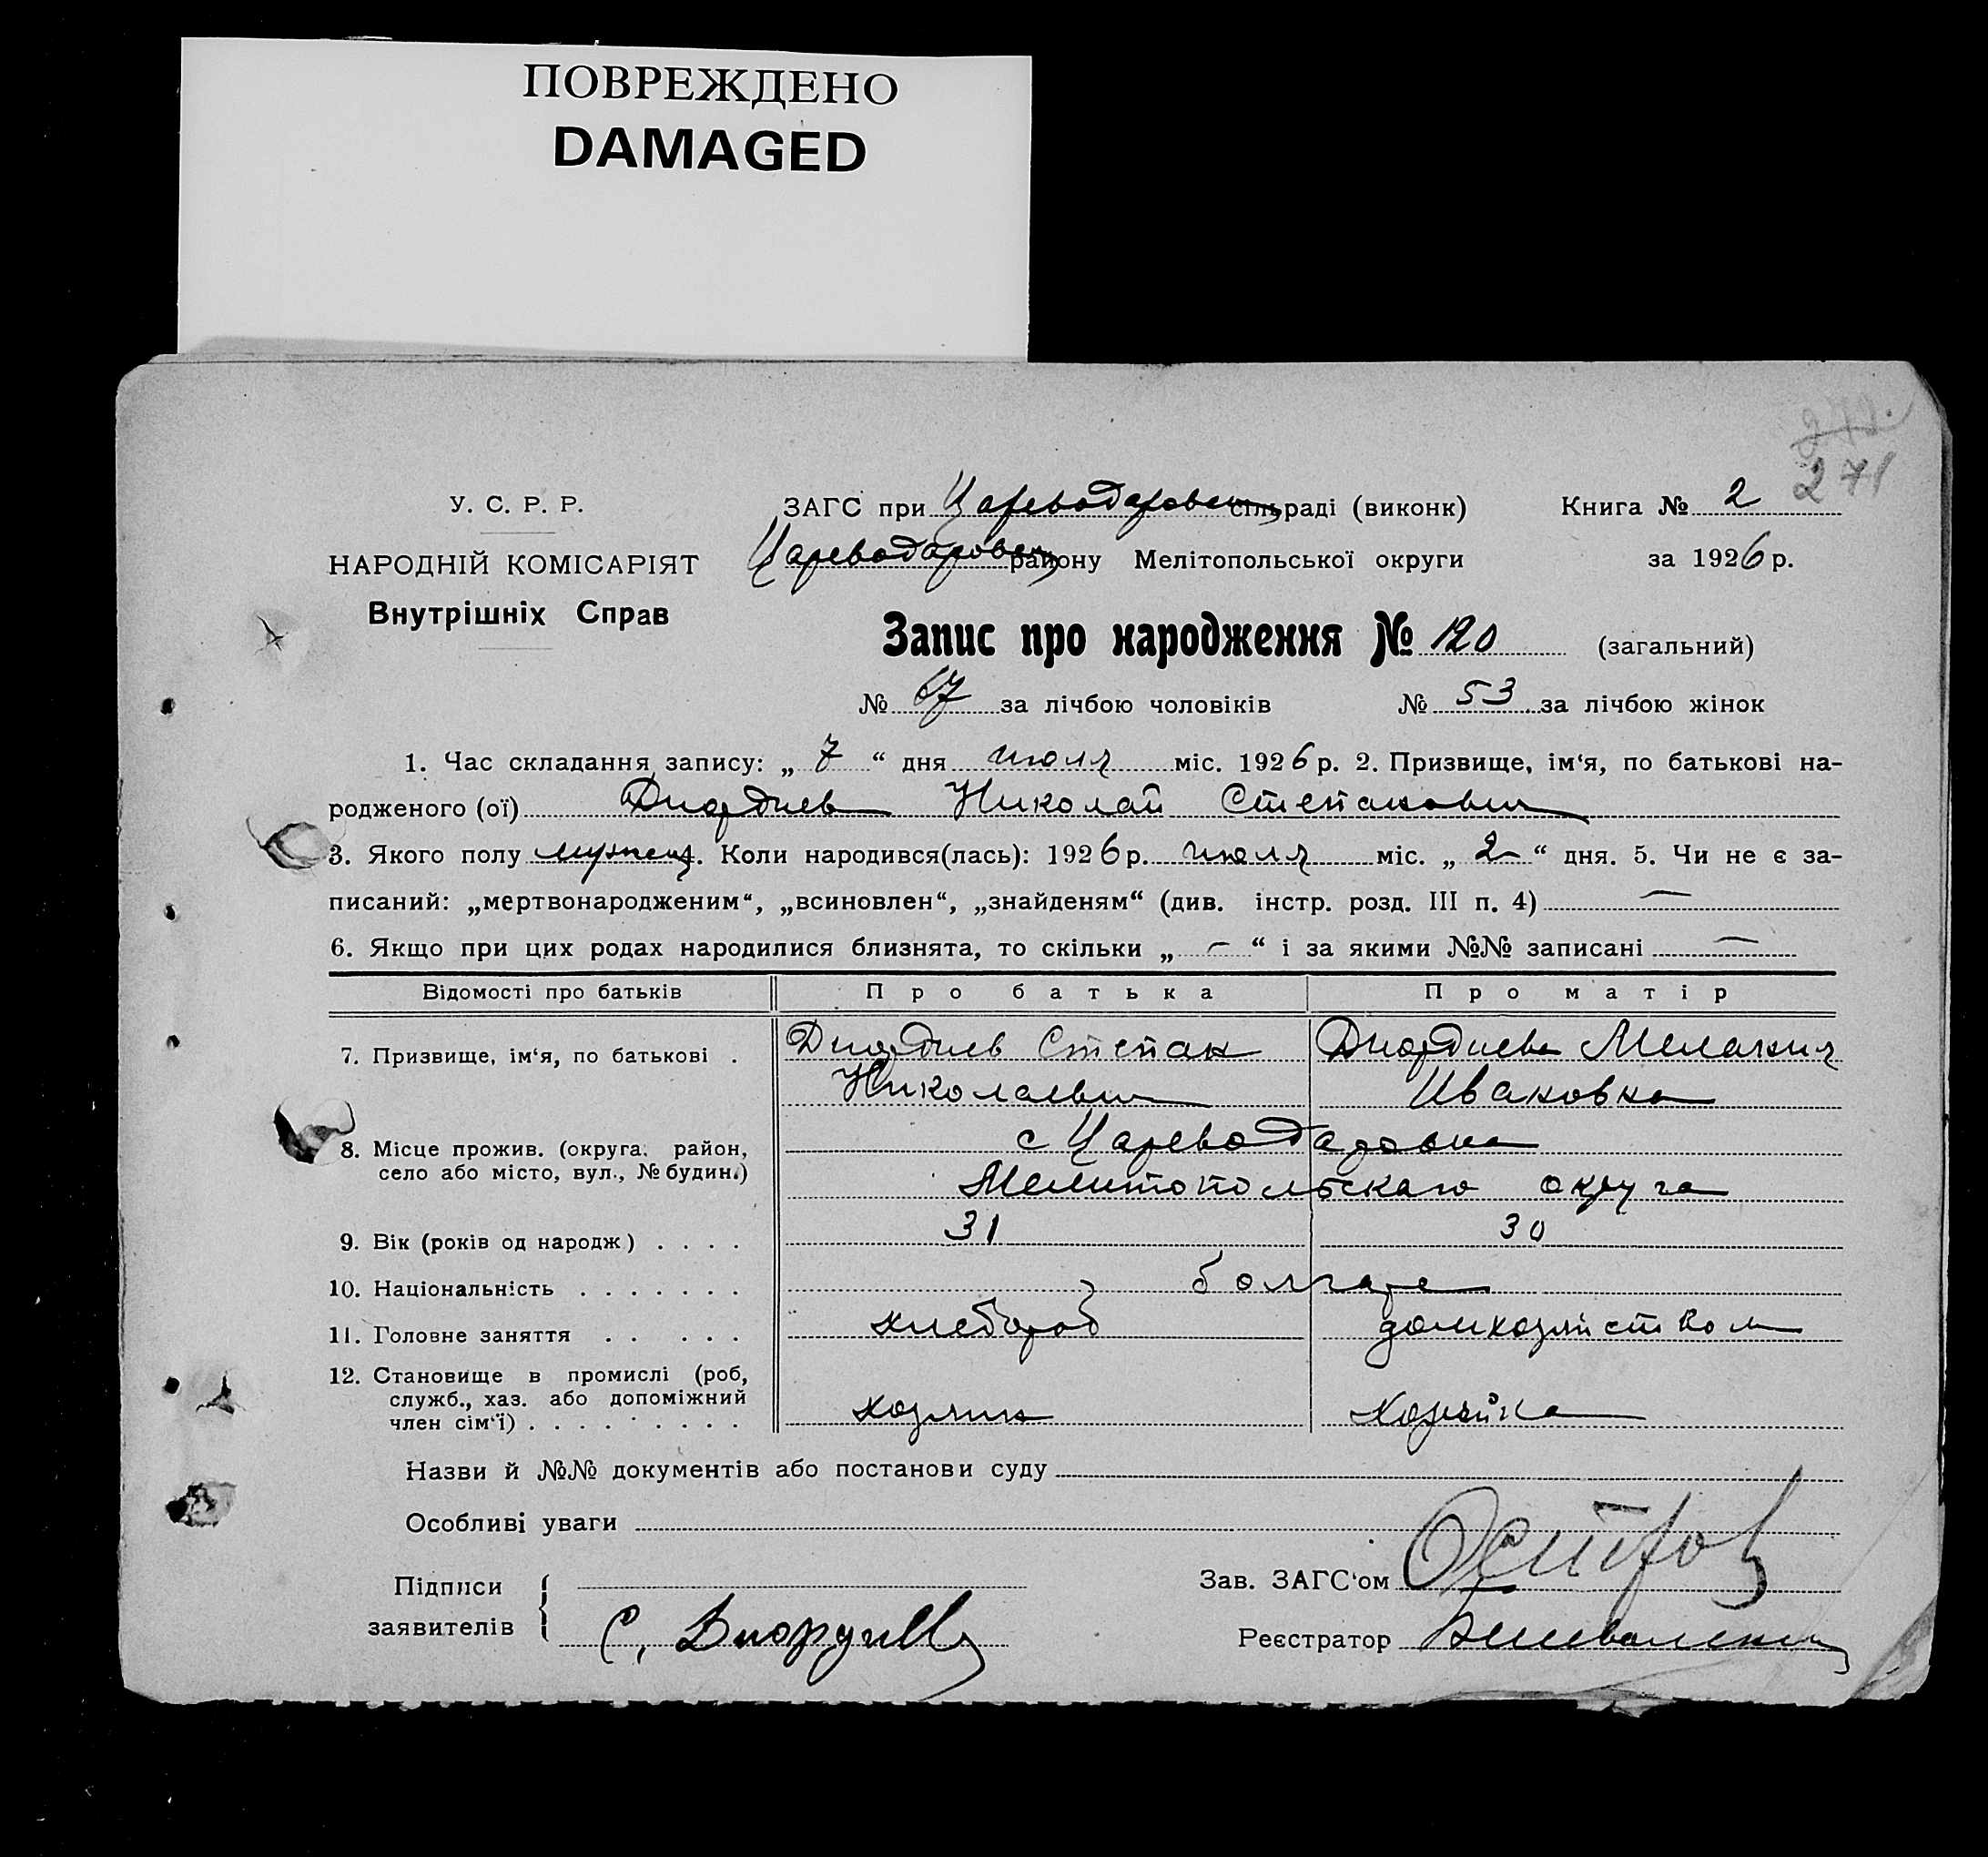 ПОВРЕЖДЕНО
DAMAGED
271
У. С. Р. Р.
ЗАГС при Цареводаровск сільраді (виконк) Книга № 2
НАРОДНІЙ КОМІСАРІЯТ
Цареводаровск району Мелітопольської округи за 1926 р.
Внутрішніх Справ
Запис про народження № 120 (загальний)
№ 67 за лічбою чоловіків № 53 за лічбою жінок
1. Час складання запису: „ 7 “ дня июля міс. 1926 р. 2. Призвище, ім‘я, по батькові на-
родженого (ої) Диордиев Николай Степанович
3. Якого полу мужск. Коли народився(лась): 1926 р. июля міс. „ 2 “ дня. 5. Чи не є за-
писаний: „мертвонародженим“, „всиновлен“, „знайденям“ (див. інстр. розд. III п. 4) —
6. Якщо при цих родах народилися близнята, то скільки „ — “ і за якими №№ записані —
Відомості про батьків Про батька Про матір
7. Призвище, ім‘я, по батькові . Диордиев Степан Диордиева Мелания
Николаевич Ивановна
8. Місце прожив. (округа, район, с Цареводаровка
село або місто, вул., № будин.)
Мелитопольскаго округа
9. Вік (років од народж) . . . . 31 30
10. Національність . . . . . . . болгаре
11. Головне заняття . . . . . хлебороб домхозяйством
12. Становище в промислі (роб,
служб., хаз. або допоміжний
член сім‘ї) . . . . . . . . . хозяин хозяйка
Назви й №№ документів або постанови суду
Особливі уваги
Підписи
Зав. ЗАГС‘ом
заявителів С. Диордиев
Реєстратор